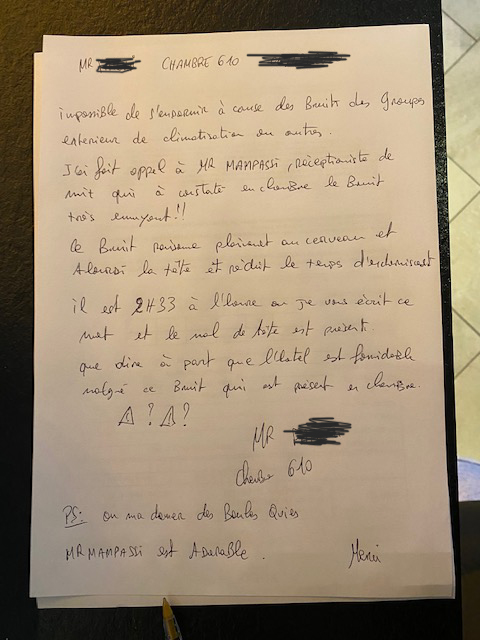 MR CHAMBRE 610
impossible de s'endormir à cause des Bruits des Groupes
exterieur de climatisation ou autres.
J'ai fait appel à MR MAMPASSI, réceptioniste de
nuit qui à constaté en chambre le Bruit
très ennuyant!!
Ce Bruit raisonne plainement au cerveau et
Alourdi la tête et réduit le temps d'endormissement
il est 2H33 à l'heure ou je vous écrit ce
mot et le mal de tête est présent.
que dire à part que l'hotel est formidable
malgré ce Bruit qui est présent en chambre.
⚠ ? ⚠ ?
MR
Chambre 610
PS: on ma donner des Boules Quies
MR MAMPASSI est Adorable.
Merci